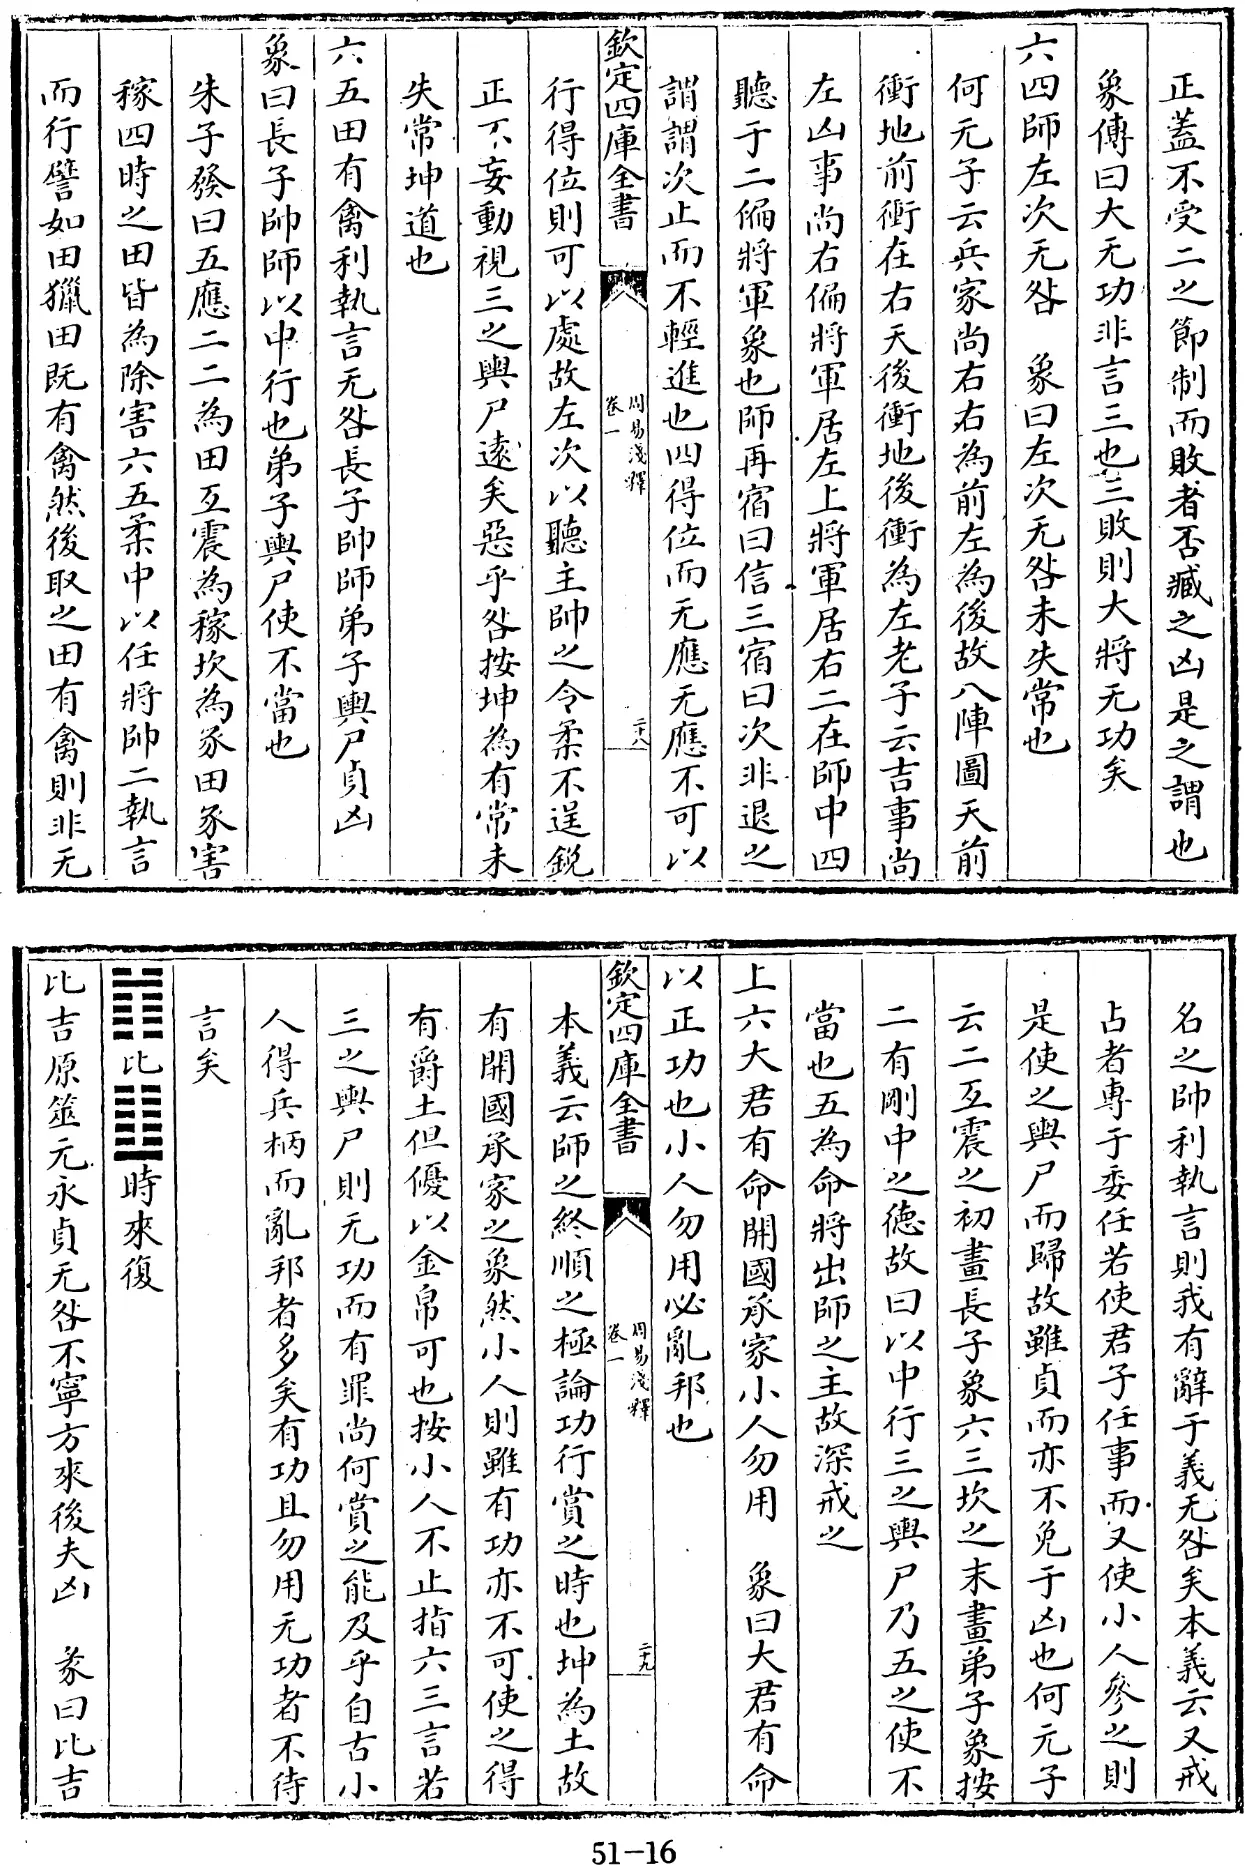 正蓋不受二之節制而敗者否臧之凶是之謂也
象傳曰大无功非言三也三敗則大將无功矣
六四師左次无咎　象曰左次无咎未失常也
何元子云兵家尚右右為前左為後故八陣圖天前
衝地前衝在右天後衝地後衝為左老子云吉事尚
左凶事尚右偏將軍居左上將軍居右二在師中四
聽于二偏將軍象也師再宿曰信三宿曰次非退之
謂謂次止而不輕進也四得位而无應无應不可以
欽定四庫全書
周易淺釋
卷一
二十八
行得位則可以處故左次以聽主帥之令柔不逞銳
正不妄動視三之輿尸遠矣惡乎咎按坤為有常未
失常坤道也
六五田有禽利執言无咎長子帥師弟子輿尸貞凶
象曰長子帥師以中行也弟子輿尸使不當也
朱子發曰五應二二為田互震為稼坎為豕田豕害
稼四時之田皆為除害六五柔中以任將帥二執言
而行譬如田獵田既有禽然後取之田有禽則非无
名之帥利執言則我有辭于義无咎矣本義云又戒
占者專于委任若使君子任事而又使小人參之則
是使之輿尸而歸故雖貞而亦不免于凶也何元子
云二互震之初畫長子象六三坎之末畫弟子象按
二有剛中之德故曰以中行三之輿尸乃五之使不
當也五為命將出師之主故深戒之
上六大君有命開國承家小人勿用　象曰大君有命
以正功也小人勿用必亂邦也
欽定四庫全書
周易淺釋
卷一
二十九
本義云師之終順之極論功行賞之時也坤為土故
有開國承家之象然小人則雖有功亦不可使之得
有爵土但優以金帛可也按小人不止指六三言若
三之輿尸則无功而有罪尚何賞之能及乎自古小
人得兵柄而亂邦者多矣有功且勿用无功者不待
言矣
比　時來復
比吉原筮元永貞无咎不寧方來後夫凶　彖曰比吉
51-16